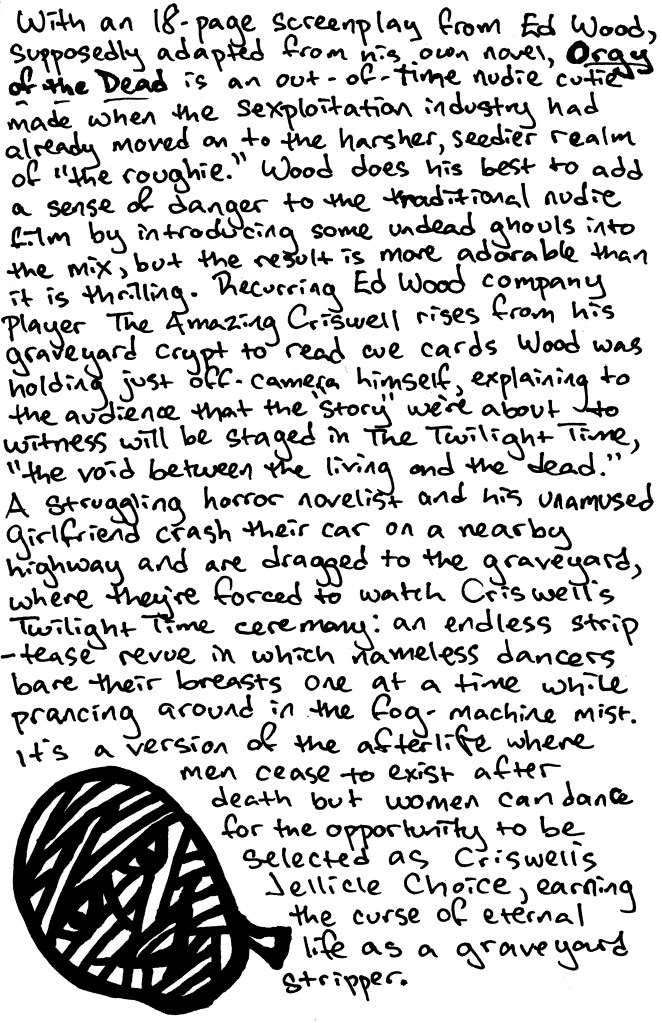 With an 18-page screenplay from Ed Wood,
supposedly adapted from his own novel, Orgy
of the Dead is an out-of-time nudie cutie
made when the sexploitation industry had
already moved on to the harsher, seedier realm
of "the roughie." Wood does his best to add
a sense of danger to the traditional nudie
film by introducing some undead ghouls into
the mix, but the result is more adorable than
it is thrilling. Recurring Ed Wood company
player The Amazing Criswell rises from his
graveyard crypt to read cue cards Wood was
holding just off-camera himself, explaining to
the audience that the "story" we're about to
witness will be staged in The Twilight Time,
"the void between the living and the dead."
A struggling horror novelist and his unamused
girlfriend crash their car on a nearby
highway and are dragged to the graveyard,
where they're forced to watch Criswell's
Twilight Time ceremony: an endless strip
-tease revue in which nameless dancers
bare their breasts one at a time while
prancing around in the fog-machine mist.
It's a version of the afterlife where
men cease to exist after
death but women can dance
for the opportunity to be
selected as Criswell's
Jellicle Choice, earning
the curse of eternal
life as a graveyard
stripper.